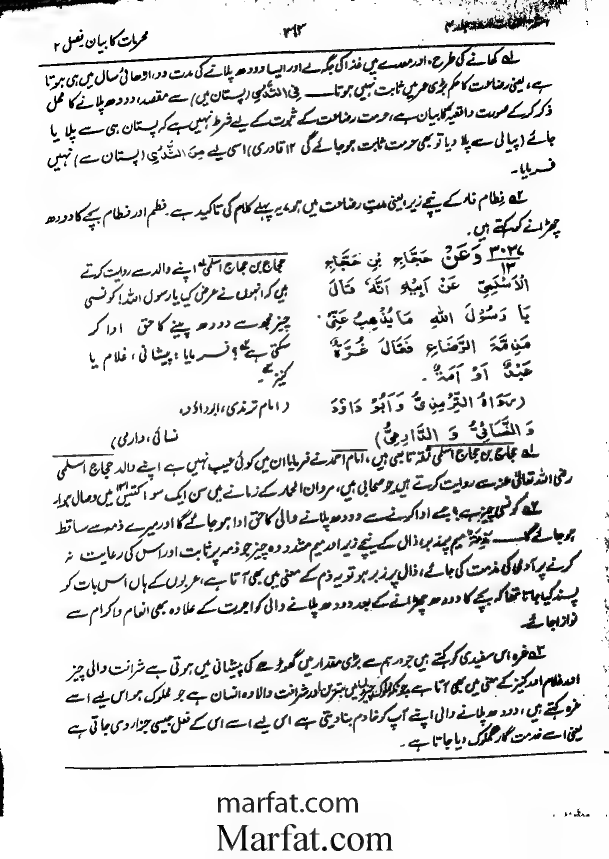 محرمات کا بیان فصل ۲
۳۶۲
لہ کھانے کی طرح، اور معدے میں غذا کی جگہ لے اور ایسا دودھ پلانے کی مدت دو، اڑھائی سال میں ہی ہوتا
ہے، یعنی رضاعت کا حکم بڑی عمر میں ثابت نہیں ہوتا — فِی الثَّدْیِ (پستان میں) سے مقصد، دودھ پلانے کا محل
ذکر کر کے صورت واقعیہ کا بیان ہے، حرمت رضاعت کے ثبوت کے لیے شرط نہیں ہے کہ پستان ہی سے پلایا
جائے (پیالی سے پلا دیا تو بھی حرمت ثابت ہو جائے گی ۱۲ قادری) اسی لیے مِنَ الثَّدْیِ (پستان سے) نہیں
فرمایا۔
۲ہ فِطام فاء کے نیچے زیر یعنی مدت رضاعت میں ہو، یہ پہلے کلام کی تاکید ہے۔ فطم اور فطام بچے کا دودھ
چھڑانے کو کہتے ہیں۔
۳۰۳۷/۱۳ وَعَنْ حَجَّاجِ بْنِ حَجَّاجٍ
الْاَسْلَمِيِّ عَنْ اَبِيْهِ اَنَّهٗ قَالَ
يَا رَسُوْلَ اللهِ مَا يُذْهِبُ عَنِّيْ
مَذِمَّةَ الرَّضَاعِ فَقَالَ غُرَّةٌ
عَبْدٌ اَوْ اَمَةٌ۔
(رَوَاهُ التِّرْمِذِيُّ وَاَبُوْ دَاوٗدَ
وَالنَّسَائِيُّ وَالدَّارِمِيُّ)
حجاج بن حجاج اسلمی لہ اپنے والد سے روایت کرتے
ہیں کہ انہوں نے عرض کیا یا رسول اللہ! کونسی
چیز مجھ سے دودھ پینے کا حق ادا کر
سکتی ہے ۲ہ؟ فرمایا: پیشانی، غلام یا
کنیز ۳ہ
(امام ترمذی، ابوداؤد،
نسائی، دارمی)
لہ حجاج بن حجاج اسلمی ثقہ تابعی ہیں، امام احمد نے فرمایا ان میں کوئی عیب نہیں ہے اپنے والد حجاج اسلمی
رضی اللہ تعالیٰ عنہ سے روایت کرتے ہیں جو صحابی ہیں، مروان الحمار کے زمانے میں سن ایک سو اکتیس ۱۳۱ میں وصال ہوا
۲ہ کونسی چیز ہے؟ جسے ادا کرنے سے دودھ پلانے والی کا حق ادا ہو جائے گا اور میرے ذمہ سے ساقط
ہو جائے گا — مَذِمَّةَ میم پر زبر، ذال کے نیچے زیر اور میم مشدد وہ چیز جو ذمہ پر ثابت اور اس کی رعایت نہ
کرنے پر آدمی کی مذمت کی جائے، ذال پر زبر ہو تو یہ ذم کے معنی میں بھی آتا ہے، عربوں کے ہاں اس بات کو
پسند کیا جاتا تھا کہ بچے کا دودھ چھڑانے کے بعد دودھ پلانے والی کو اجرت کے علاوہ بھی انعام و اکرام سے
نوازا جائے۔
۳ہ غرہ اس سفیدی کو کہتے ہیں جو درہم سے بڑی مقدار میں گھوڑے کی پیشانی میں ہوتی ہے شرافت والی چیز
اور غلام اور کنیز کے معنی میں بھی آتا ہے بہترین اور شرافت والا وہ انسان ہے جو مملوک ہو اس لیے اسے
غرہ کہتے ہیں، دودھ پلانے والی اپنے آپ کو خادم بنا دیتی ہے اس لیے اسے اس کے فعل جیسی جزا دی جاتی ہے
یعنی اسے خدمت گار مملوک دیا جاتا ہے۔
marfat.com
Marfat.com